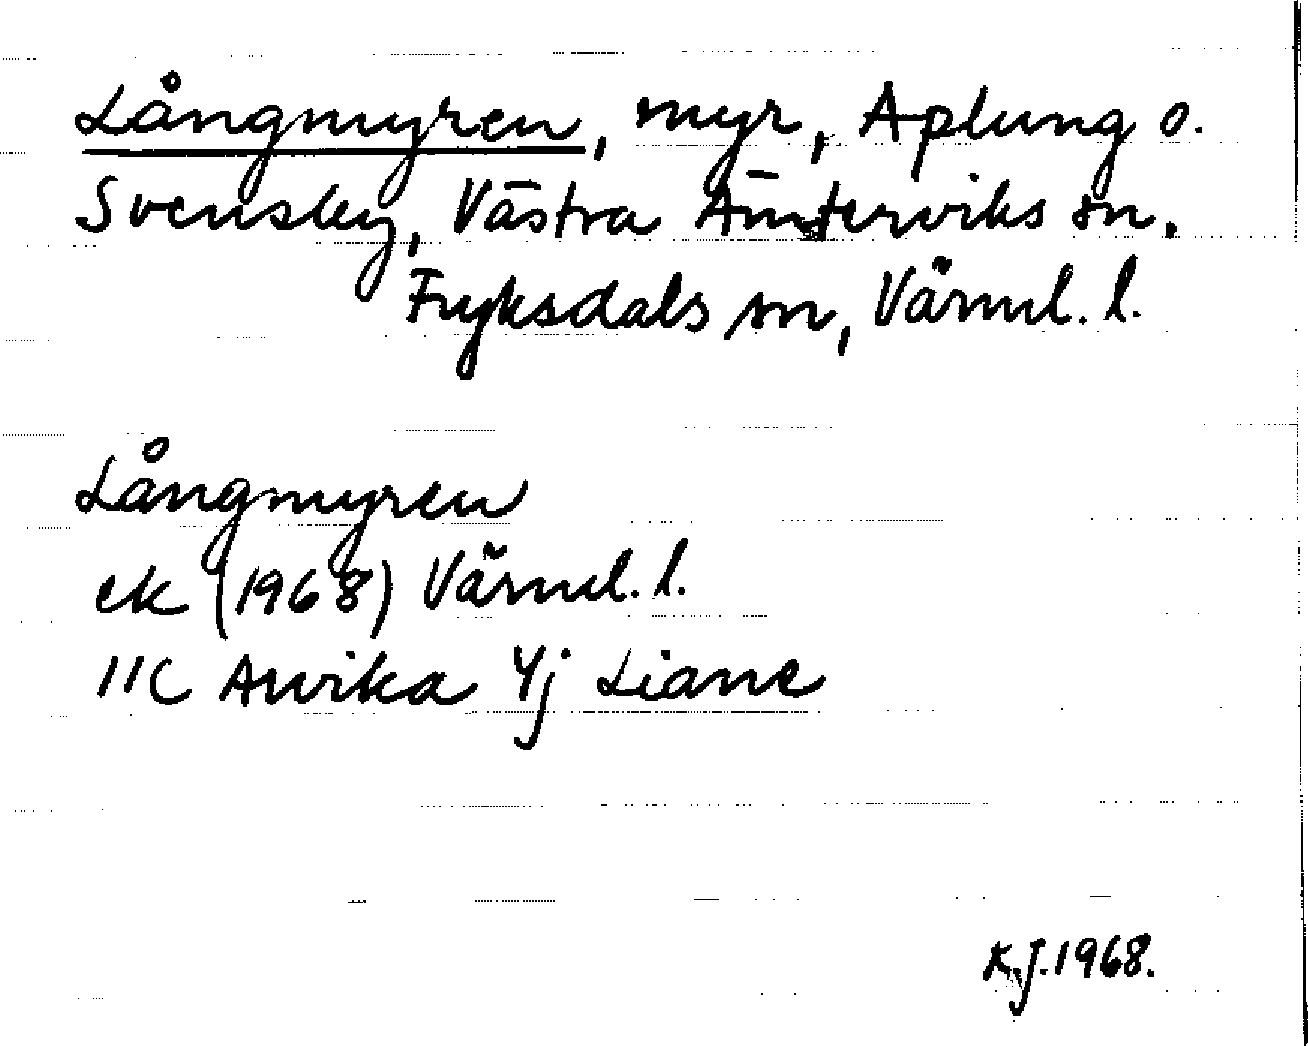 Långmyren, myr, Aplung o.
Svensby, Västra Ämterviks sn.
Fryksdals sn, Värml. l.
Långmyren
ek (1968) Värml. l.
11C Arvika 4j Liane
K.J. 1968.